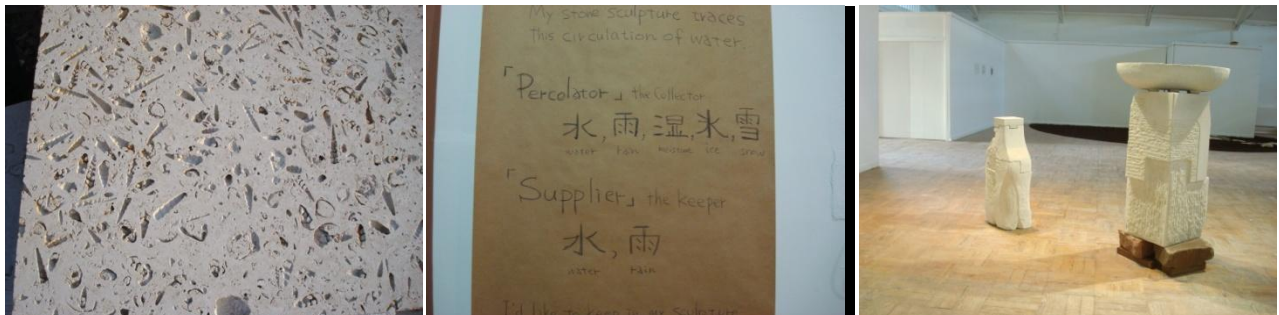 My stone sculpture traces
this circulation of water.
「Percolator」 the Collector
水, 雨, 湿, 氷, 雪
water rain moisture ice snow
「Supplier」 the keeper
水, 雨
water rain
I'd like to keep in my sculpture